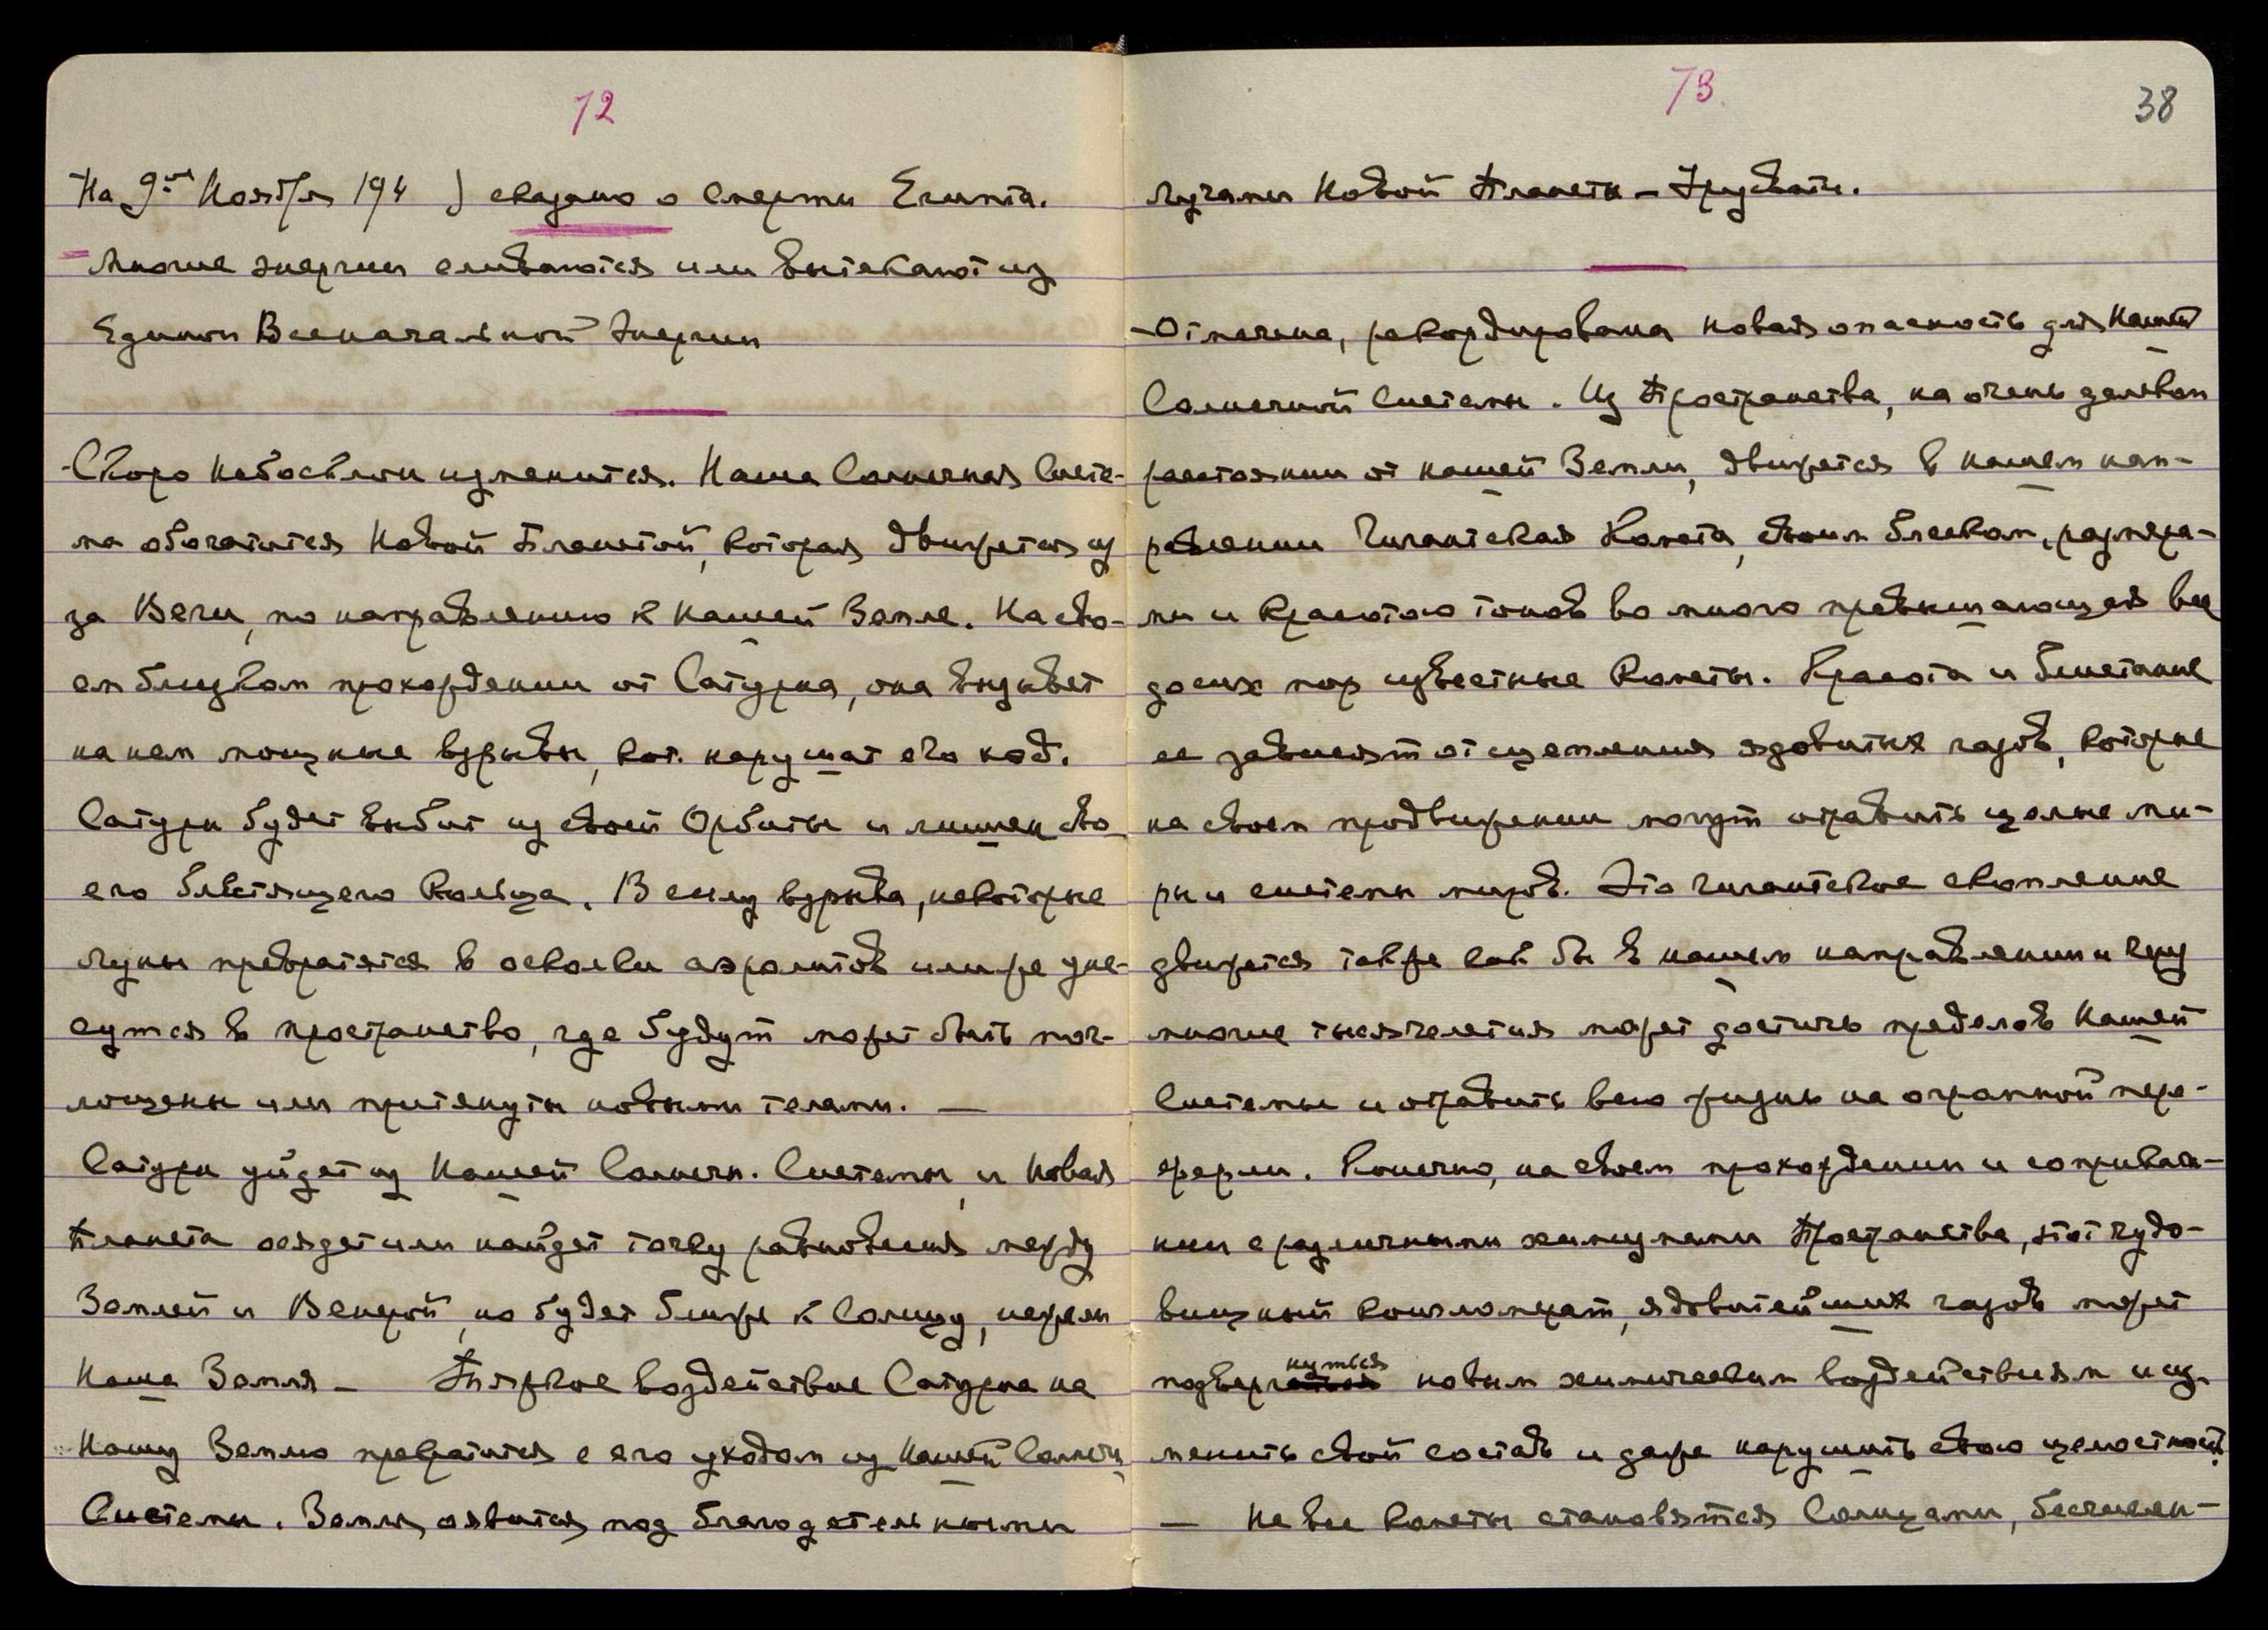 72
На 9ое Ноября 194 ) сказано о Смерти Египта.
Многие энергии сливаются или вытекают из
Единой Всеначальной Энергии
-Скоро Небосклон изменится. Наша Солнечная Систе-
ма обогатится Новой Планетой, которая движется из
за Веги, по направлению к Нашей Земле. На сво-
ем близком прохождении от Сатурна, она вызывет
на нем мощные взрывы, кот. нарушат его ход.
Сатурн будет выбит из своей Орбиты и лишен сво-
его блестящего Кольца. В силу взрыва, некоторые
луны превратятся в осколки аэролитов или же уне-
сутся в пространство, где будут может быть пог-
лощены или притянуты новыми телами. —
Сатурн уйдет из Нашей Солнечн. Системы, и Новая
Планета осядет или найдет точку равновесия между
Землей и Венерой, но будет ближе к Солнцу, нежели
Наша Земля — Тяжкое воздействие Сатурна на
Нашу Землю прекратится с его уходом из Нашей Солнечн.
Системы. Земля оявится под благодательными
73.
38
лучами Новой Планеты — Урусвати.
-Отмечена, рекордирована новая опасность для Нашей
Солнечной Системы. Из Пространства, на очень далеком
расстоянии от нашей Земли, движется в нашем нап-
равлении Гигантская Комета, своим блеском, размера-
ми и красотою тонов во много превышающая все
до сих пор известные Кометы. Красота и блистание
ее зависят от сцепления ядовитых газов, которые
на своем продвижении могут отравить целые ми-
ры и системы миров. Это гигантское скопление
движется также как бы в нашем направлении и чрез
многие тысячелетия может достичь пределов Нашей
Системы и отравить всю жизнь на огромной пери-
ферии. Конечно, на своем прохождении и соприкаса-
нии с различными химизмами Пространства, этот чудо-
вищный конгломерат, ядовитейших газов может
подвергнуться новым химическим воздействиям и из-
менить свой состав и даже нарушить свою целостность.
— Не все Кометы становятся Солнцами, бесчислен-